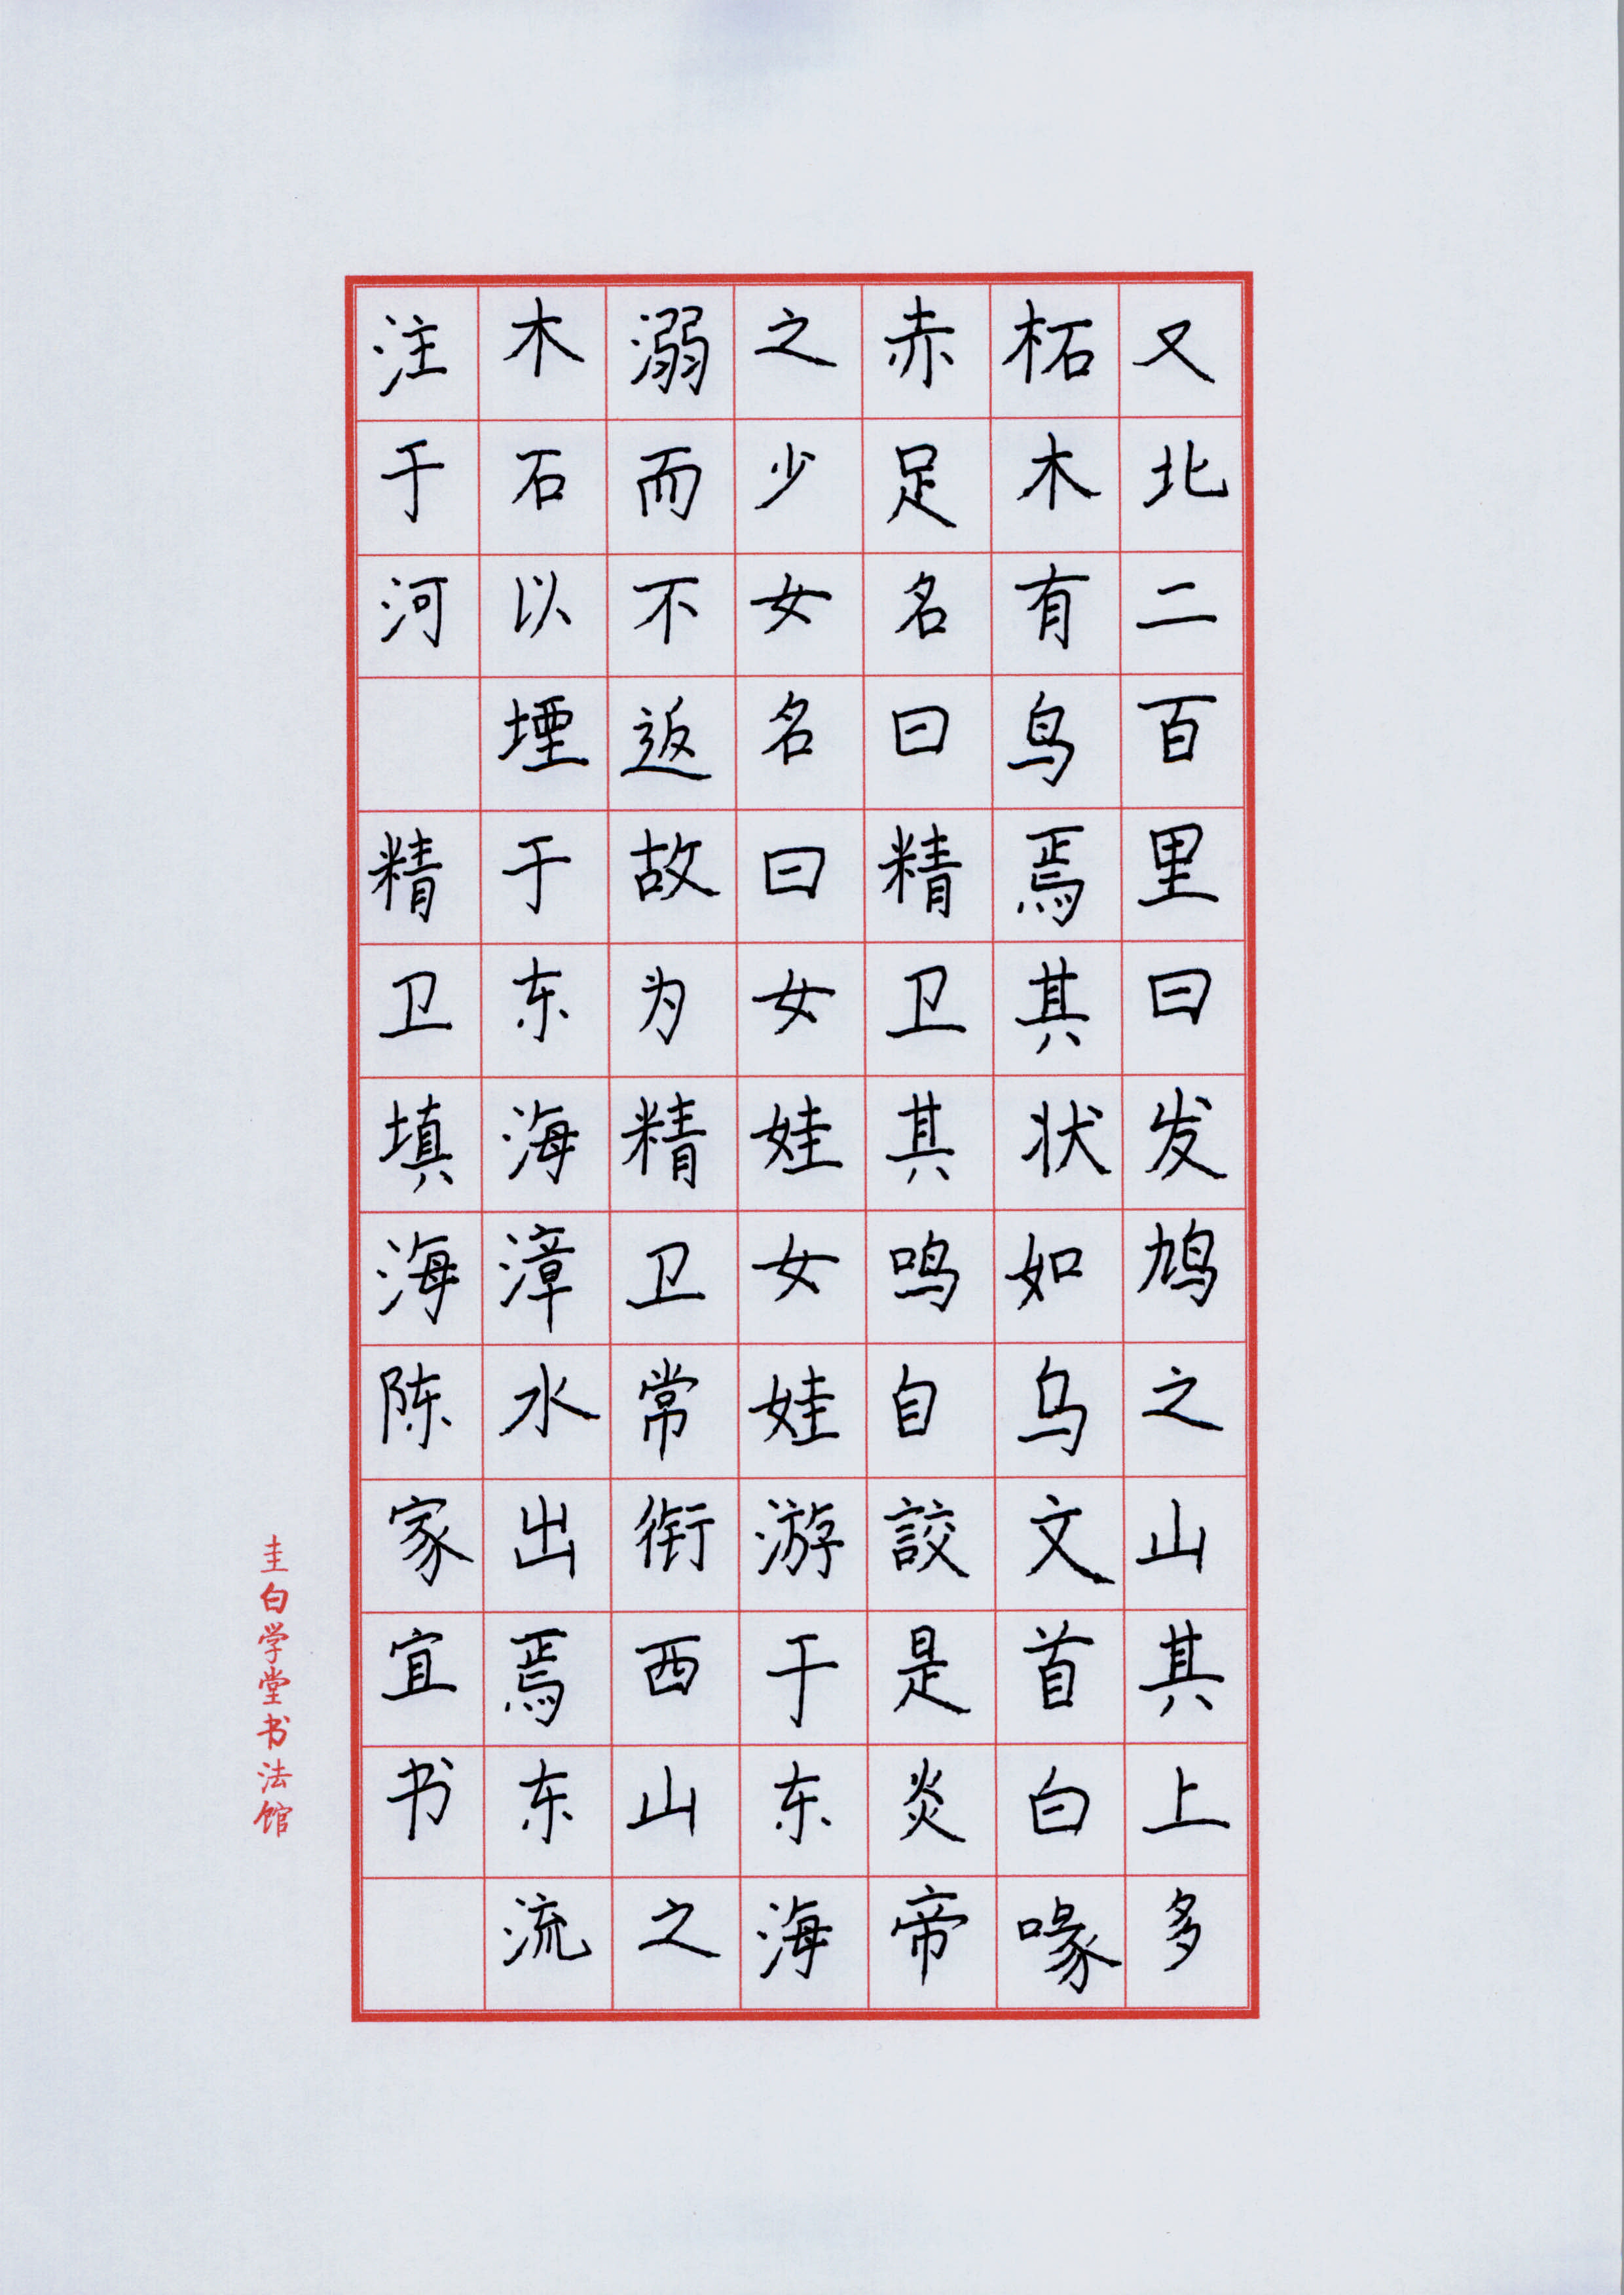 又北二百里曰发鸠之山其上多
柘木有鸟焉其状如乌文首白喙
赤足名曰精卫其鸣自詨是炎帝
之少女名曰女娃女娃游于东海
溺而不返故为精卫常衔西山之
木石以堙于东海漳水出焉东流
注于河 精卫填海陈家宜书
圭白学堂书法馆